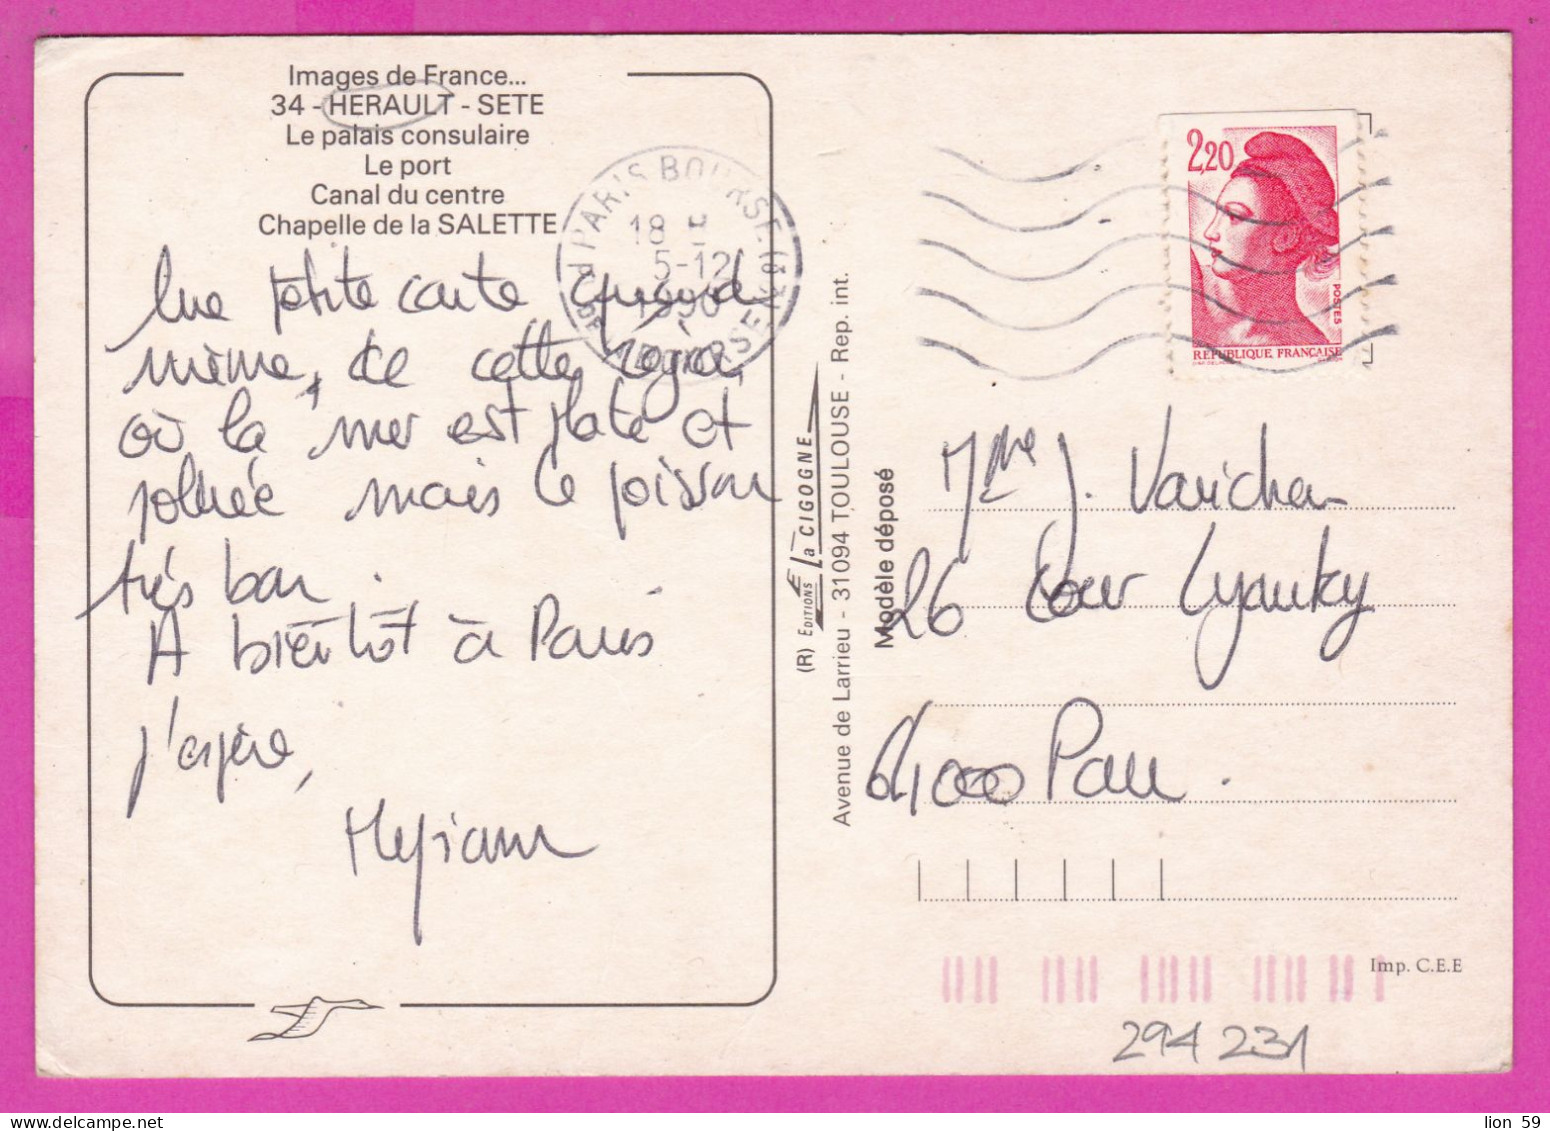 Images de France...
34 - HERAULT - SETE
Le palais consulaire
Le port
Canal du centre
Chapelle de la SALETTE
Une petite carte quand
même, de cette région,
où la mer est plate et
polluée mais le poisson
très bon.
A bientôt à Paris
j'espère,
Myriam
PARIS BOURSE
18 H
5-12
1990
(R) EDITIONS La CIGOGNE
Avenue de Larrieu - 31094 TOULOUSE - Rep. int.
Modèle déposé
2,20
POSTES
REPUBLIQUE FRANCAISE
Mme J.
26 Cour Lyautey
64000 Pau.
Imp. C.E.E
294 231
lion 59